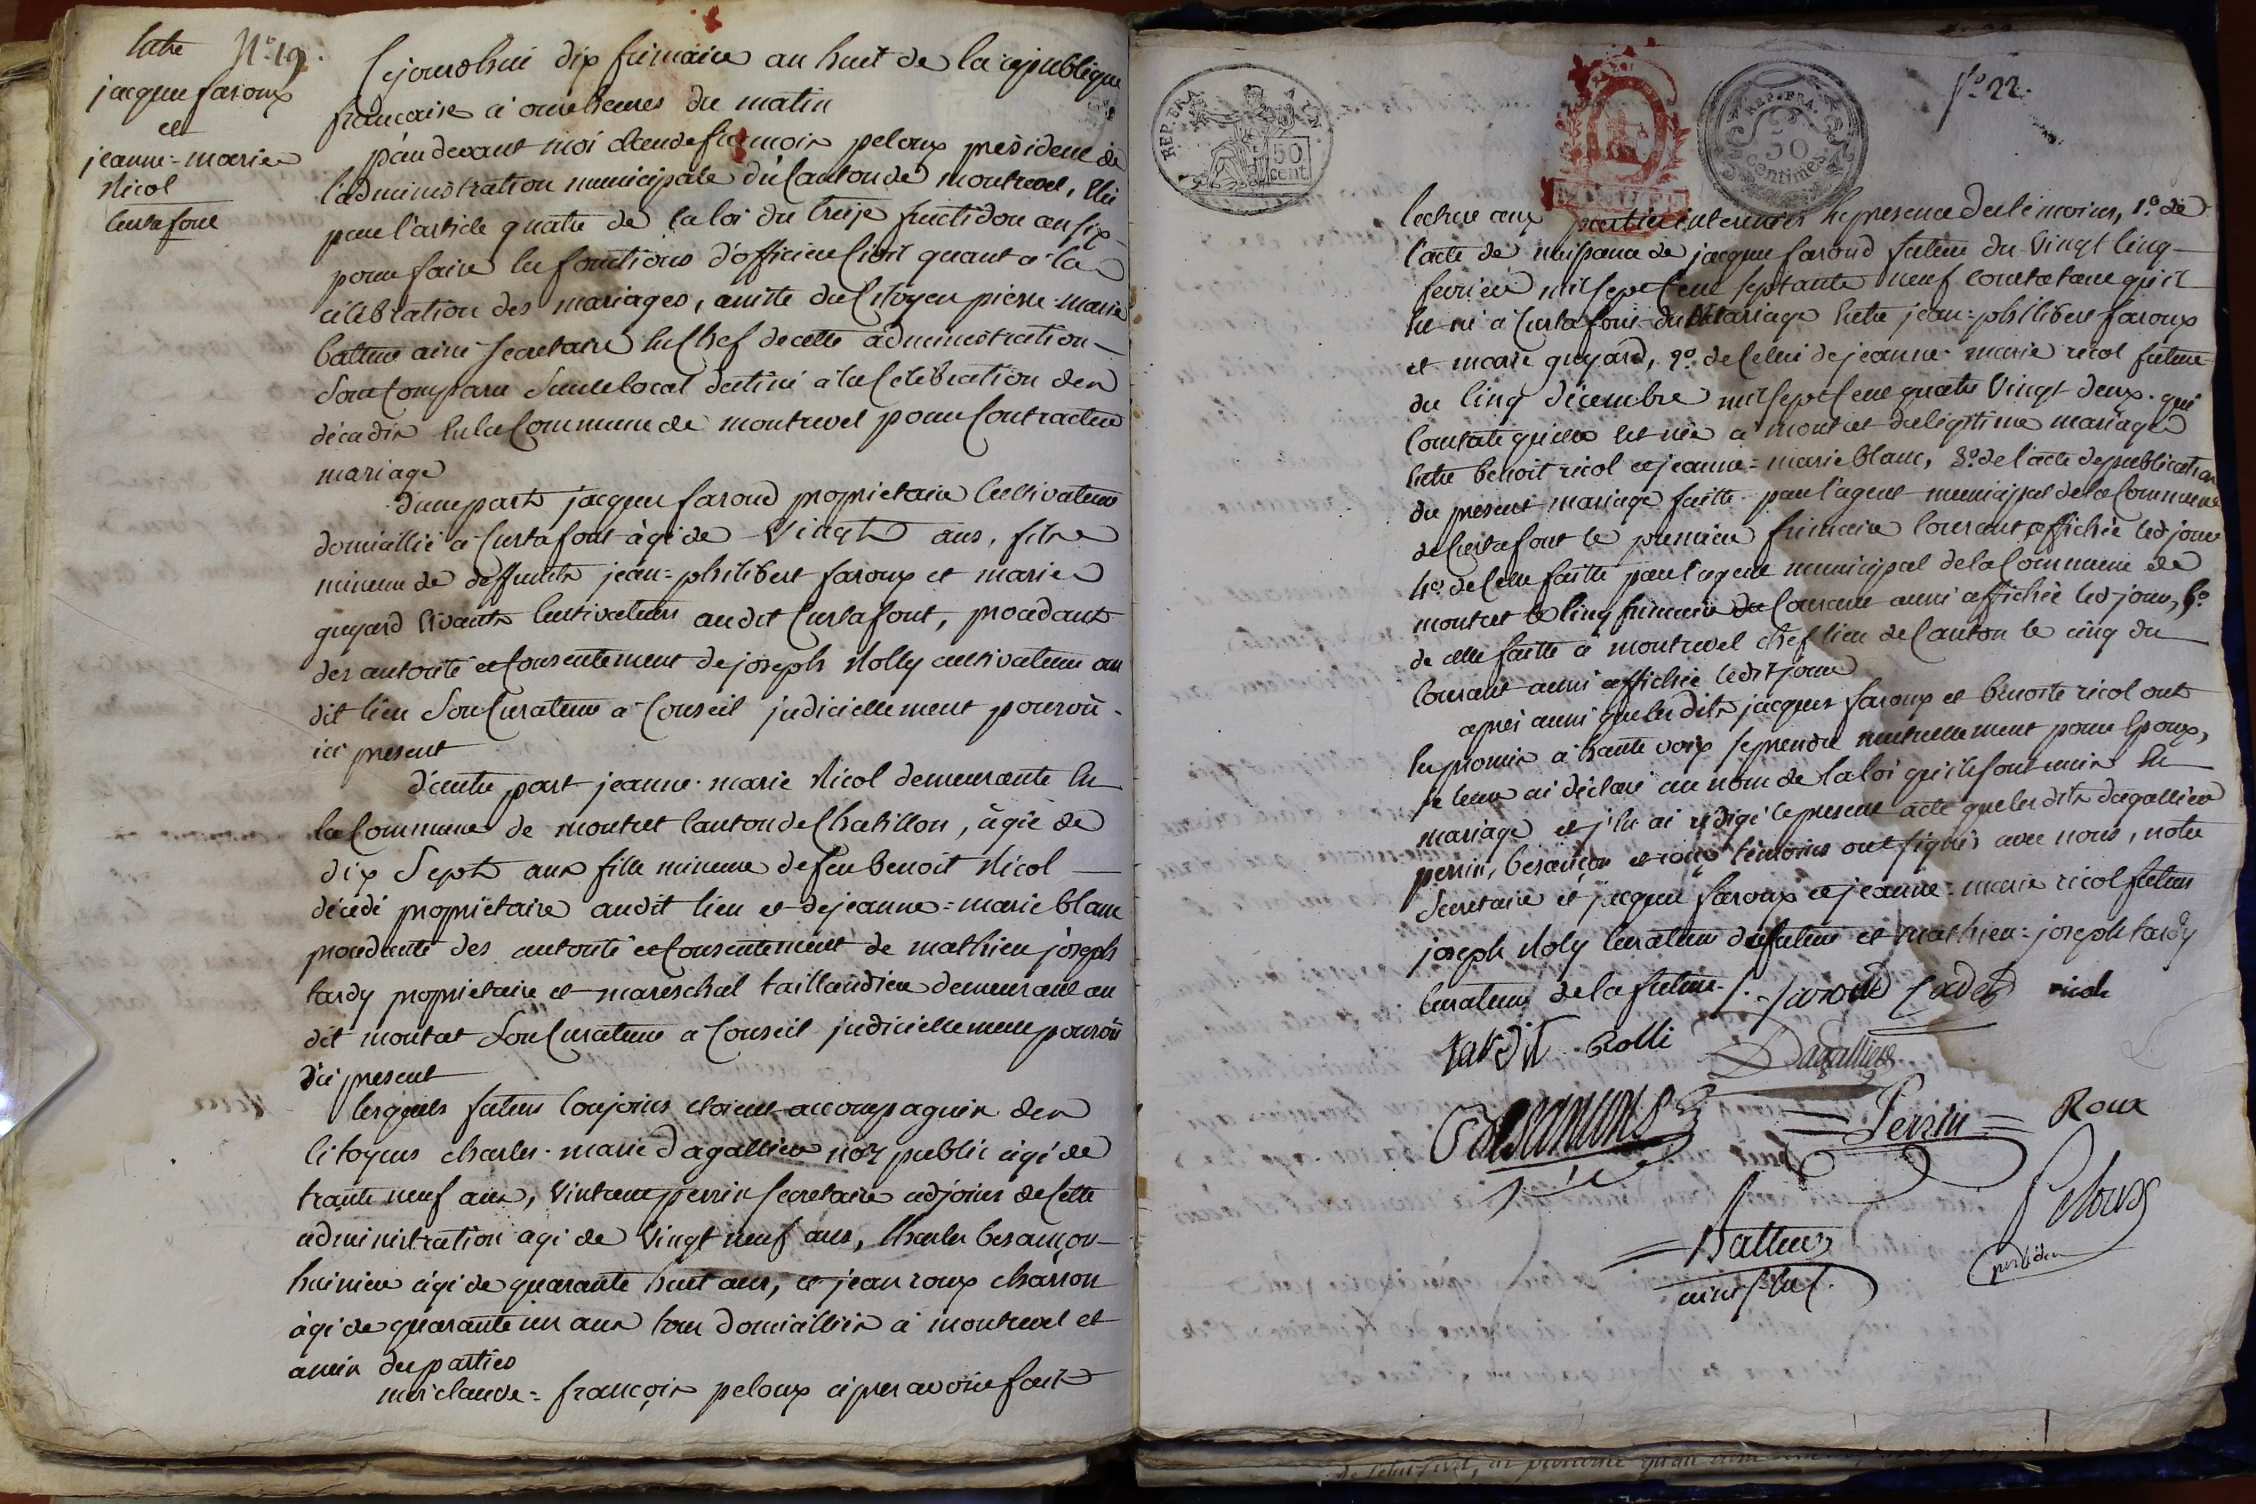 N.º 19.
Entre
jacques faroux
et
jeanne=marie
Nicol
Curtafont
Cejourdhui dix frimaire an huit de la republique
francaise à onze heures du matin
pardevant moi claude françois peloux président de
l'administration municipale du Canton de montrevel, Elu
par l'article quatre de la loi du treize fructidor an six
pour faire les fonctions d'officier Civil quant à la
célébration des mariages, assisté du Citoyen pierre-marie
battur ainé secretaire En Chef de cette administration
Sont Comparu dans le local destiné à la Célébration des
décadis En la Commune de montrevel pour Contracter
mariage
d'une part jacques faroud propriétaire Cultivateur
domicillié à Curtafont âgé de Vingt ans, fils
mineur de deffunts jean=philibert faroux et marie
guyard vivants Cultivateurs audit Curtafont, procédant
des autorité et Consentement de joseph Nolly cultivateur au
dit lieu Son Curateur à Conseil judiciellement pourvû
ici présent
d'autre part jeanne-marie Nicol demeurante En
la Commune de montcet Canton de Chatillon, âgée de
dix Sept ans fille mineure de feu benoit Nicol
décédé propriétaire audit lieu et de jeanne=marie blanc
procédante des autorité et Consentement de mathieu joseph
tardy propriétaire et mareschal taillandier demeurant au
dit montcet Son Curateur à Conseil judiciellement pourvû
ici présent
lesquels futurs Conjoins etoient accompagnés des
Citoyens charles-marie dagallier nore public âgé de
trante neuf ans, Vincent perrin secretaire adjoint de Cette
administration agé de Vingt neuf ans, Charles besançon
huissier âgé de quarante huit ans, et jean roux charron
âgé de quarante un ans tous domicilliés à montrevel et
amis des parties
moi claude=françois peloux après avoir fait
REP. FRA.
50
cent.
REP. FRA.
50
Centimes
fº 22.
lecture aux parties interessées En presence des témoins, 1.º de
l'acte de naissance de jacques faroud futur du Vingt Cinq
fevrier mil sept Cent septante neuf constatant qu'il
Est né à Curtafont du Mariage Entre jean=philibert faroux
et marie guyard, 2º. de Celui de jeanne-marie nicol future
du Cinq décembre mil Sept Cent quatre Vingt deux qui
Constate qu'elle Est née à montcet du légitime mariage
Entre benoit nicol et jeanne=marie blanc, 3º. de l'acte de publication
du present mariage faitte par l'agent municipal de la Commune
de Curtafont le premier frimaire Courant affichée led jour
4º. de Celle faitte par l'agent municipal de la Commune de
montcet le Cinq frimaire du Courant aussi affichée led jour, 5º
de celle faitte à montrevel chef lieu de Canton le cinq du
Courant aussi affichée ledit jour
après aussi que lesdits jacques faroux et benoite nicol ont
Eu promis à haute voix se prendre mutuellement pour Epoux,
je leur ai déclaré au nom de la loi qu'ils sont unis En
mariage et j'En ai rédigé le present acte que lesdits dagallier
perrin, besançon et roux témoins ont signé avec nous, notre
Secretaire et jacques faroux et jeanne=marie nicol futurs
joseph Noly Curateur du futur et mathieu=joseph tardy
Curateur de la future.
nicol
tardit Nolli Dagallier
Besançon Perrin Roux
Peloux
président
Battur
ainé